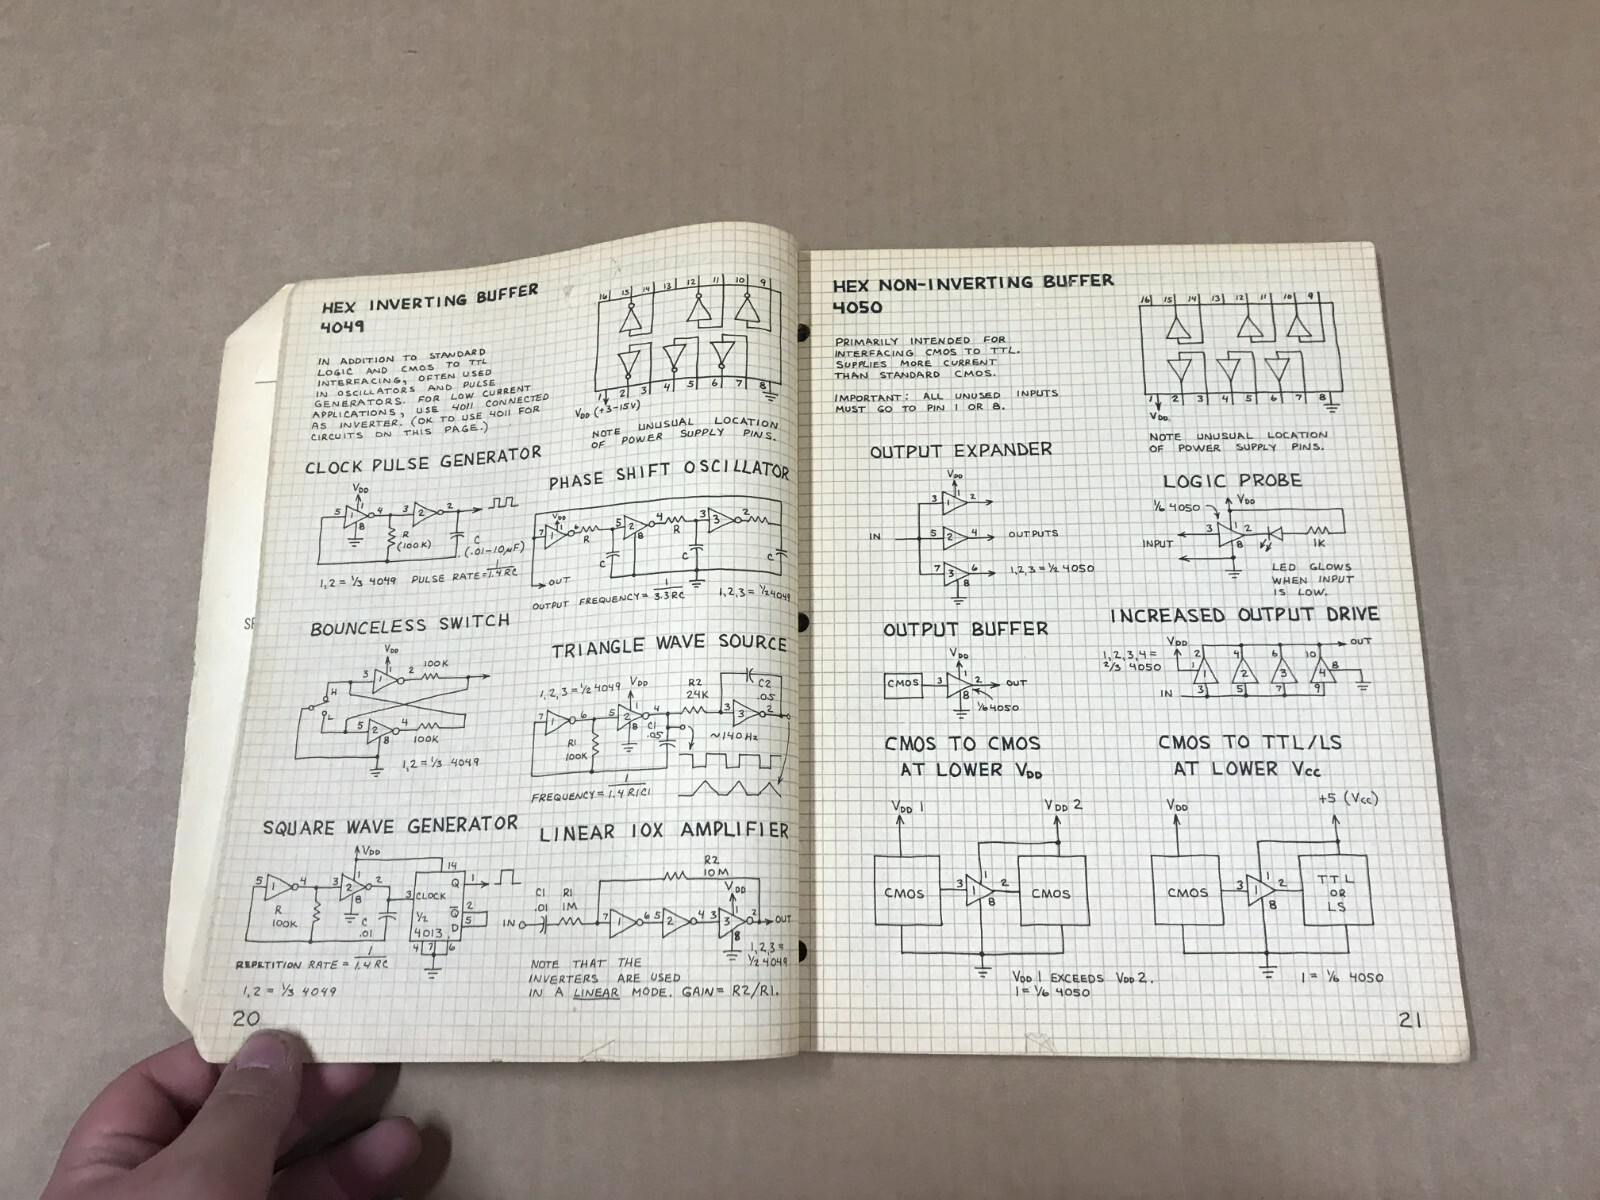 HEX INVERTING BUFFER
4049
IN ADDITION TO STANDARD
LOGIC AND CMOS TO TTL
INTERFACING, OFTEN USED
IN OSCILLATORS AND PULSE
GENERATORS. FOR LOW CURRENT
APPLICATIONS, USE 4011 CONNECTED
AS INVERTER. (OK TO USE 4011 FOR
CIRCUITS ON THIS PAGE.)
16 15 14 13 12 11 10 9
1 2 3 4 5 6 7 8
VDD (+3-15V)
NOTE UNUSUAL LOCATION
OF POWER SUPPLY PINS.
CLOCK PULSE GENERATOR
VDD
5 1 4 3 2 2
1
8
R
(100K)
C
(.01-10µF)
1,2 = 1/3 4049 PULSE RATE = 1/1.4RC
PHASE SHIFT OSCILLATOR
VDD
7 1 6 R 5 2 4 R 3 3 2
1
8
C C C
OUT
OUTPUT FREQUENCY = 1/3.3RC
1,2,3 = 1/2 4049
BOUNCELESS SWITCH
VDD
3 1 2 100K
1
H
L
5 2 4
8
100K
1,2 = 1/3 4049
TRIANGLE WAVE SOURCE
1,2,3 = 1/2 4049 VDD
R2
24K
C2
.05
7 1 6 5 2 4 3 3 2
1
8
C1
.05
R1
100K
~140Hz
FREQUENCY = 1/1.4R1C1
SQUARE WAVE GENERATOR
VDD
5 1 4 3 2 2
1
8
R
100K
C
.01
14
3 CLOCK Q 1
1/2
4013
Q̅ 2
D 5
4 7 6
REPETITION RATE = 1/1.4RC
1,2 = 1/3 4049
LINEAR 10X AMPLIFIER
R2
10M
VDD
C1
.01
R1
1M
IN 7 1 6 5 2 4 3 3 2 OUT
1
8
1,2,3 =
1/2 4049
NOTE THAT THE
INVERTERS ARE USED
IN A LINEAR MODE. GAIN = R2/R1.
20
HEX NON-INVERTING BUFFER
4050
PRIMARILY INTENDED FOR
INTERFACING CMOS TO TTL.
SUPPLIES MORE CURRENT
THAN STANDARD CMOS.
IMPORTANT: ALL UNUSED INPUTS
MUST GO TO PIN 1 OR 8.
16 15 14 13 12 11 10 9
1 2 3 4 5 6 7 8
VDD
NOTE UNUSUAL LOCATION
OF POWER SUPPLY PINS.
OUTPUT EXPANDER
VDD
3 1 2
1
IN 5 2 4 OUTPUTS
7 3 6
8
1,2,3 = 1/2 4050
LOGIC PROBE
1/6 4050 VDD
3 1 2
INPUT 8 1K
LED GLOWS
WHEN INPUT
IS LOW.
OUTPUT BUFFER
VDD
CMOS 3 1 2 OUT
8
1/6 4050
INCREASED OUTPUT DRIVE
VDD OUT
1,2,3,4 =
2/3 4050
2 4 6 10
1 1 2 3 4 8
IN 3 5 7 9
CMOS TO CMOS
AT LOWER VDD
VDD 1 VDD 2
CMOS 3 1 2 CMOS
1
8
VDD 1 EXCEEDS VDD 2.
1 = 1/6 4050
CMOS TO TTL/LS
AT LOWER VCC
VDD +5 (VCC)
CMOS 3 1 2
1
8
TTL
OR
LS
1 = 1/6 4050
21